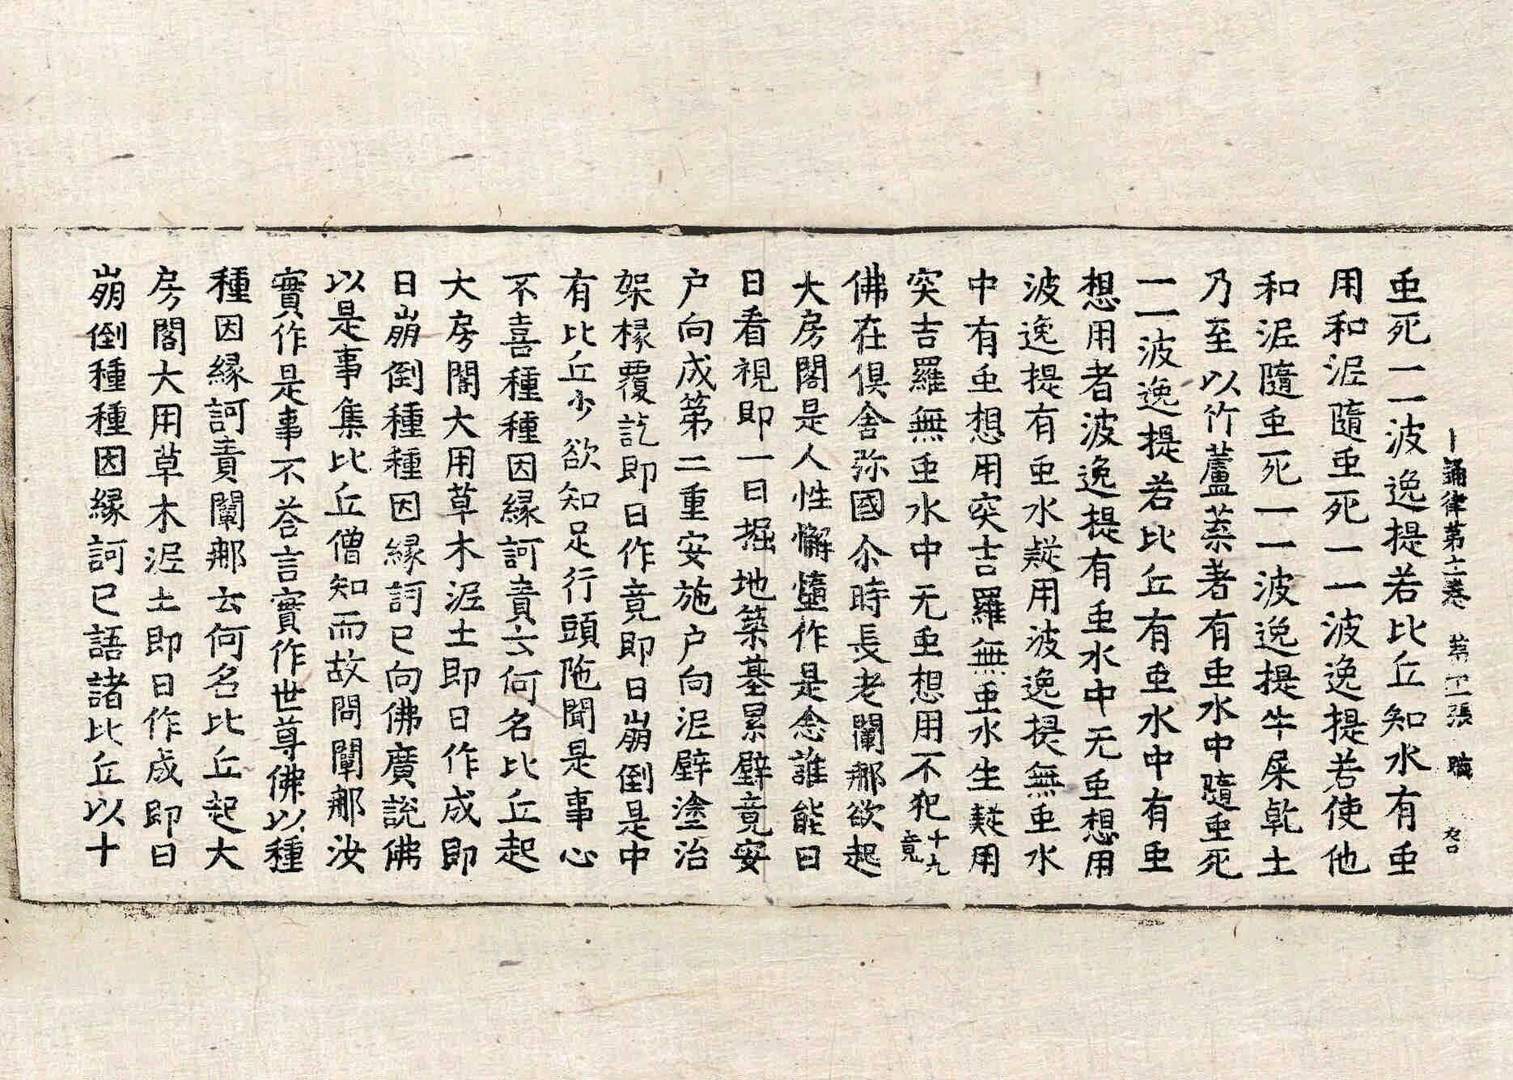 十誦律第十一卷 第張 職
虫死一一波逸提若比丘知水有虫
用和泥隨虫死一一波逸提若使他
和泥隨虫死一一波逸提牛屎乾土
乃至以竹蘆蒸著有虫水中隨虫死
一一波逸提若比丘有虫水中有虫
想用者波逸提有虫水中无虫想用
波逸提有虫水疑用波逸提無虫水
中有虫想用突吉羅無虫水生疑用
突吉羅無虫水中无虫想用不犯十九竟
佛在俱舍弥國尒時長老闡那欲起
大房閣是人性懈墮作是念誰能日
日看視即一日掘地築基累壁竟安
户向成第二重安施户向泥壁塗治
架椽覆訖即日作竟即日崩倒是中
有比丘少欲知足行頭陁聞是事心
不喜種種因緣訶責云何名比丘起
大房閣大用草木泥土即日作成即
日崩倒種種因緣訶已向佛廣說佛
以是事集比丘僧知而故問闡那汝
實作是事不荅言實作世尊佛以種
種因緣訶責闡那云何名比丘起大
房閣大用草木泥土即日作成即日
崩倒種種因緣訶已語諸比丘以十